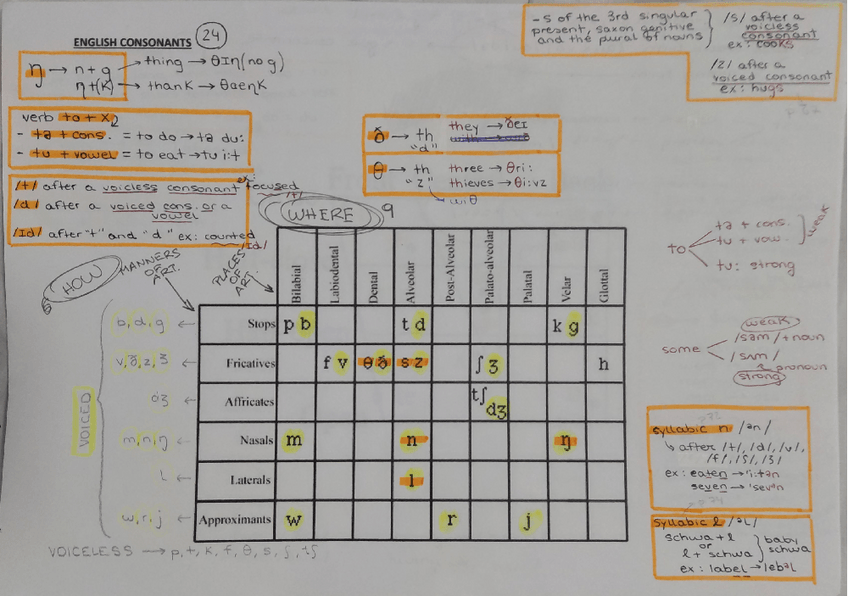 ENGLISH CONSONANTS 24
ŋ → n+g → thing → θIŋ (no g)
ŋ+(K) → thank → θaeŋK
verb to + x
- tə + cons. = to do → tə du:
- tu + vowel = to eat → tu i:t
/t/ after a voiceless consonant ex: focused /t/
/d/ after a voiced cons. or a vowel
/Id/ after "t" and "d" ex: counted /Id/
ð → th "d" they → ðeI
θ → th "z" three → θri:
thieves → θi:vz
wiθ
-s of the 3rd singular present, saxon genitive and the plural of nouns
/s/ after a voiceless consonant
ex: cooks
/z/ after a voiced consonant
ex: hugs
WHERE 9
5 HOW
MANNERS OF ART.
PLACES OF ART.
Bilabial Labiodental Dental Alveolar Post-Alveolar Palato-alveolar Palatal Velar Glottal
b, d, g ← Stops p b t d k g
v, ð, z, ʒ ← Fricatives f v θ ð s z ʃ ʒ h
dʒ ← Affricates tʃ dʒ
m, n, ŋ ← Nasals m n ŋ
l ← Laterals l
w, r, j ← Approximants w r j
VOICED
VOICELESS → p, t, k, f, θ, s, ʃ, tʃ
to
tə + cons.
tu + vow.
weak
tu: strong
some
weak
/səm/ + noun
/sʌm/
pronoun
strong
syllabic n /ən/
↳ after /t/, /d/, /v/,
/f/, /ʃ/, /ʒ/
ex: eaten → 'i:tən
seven → 'sevən
syllabic l /əl/
schwa + l
or
l + schwa
baby schwa
ex: label → lebəl